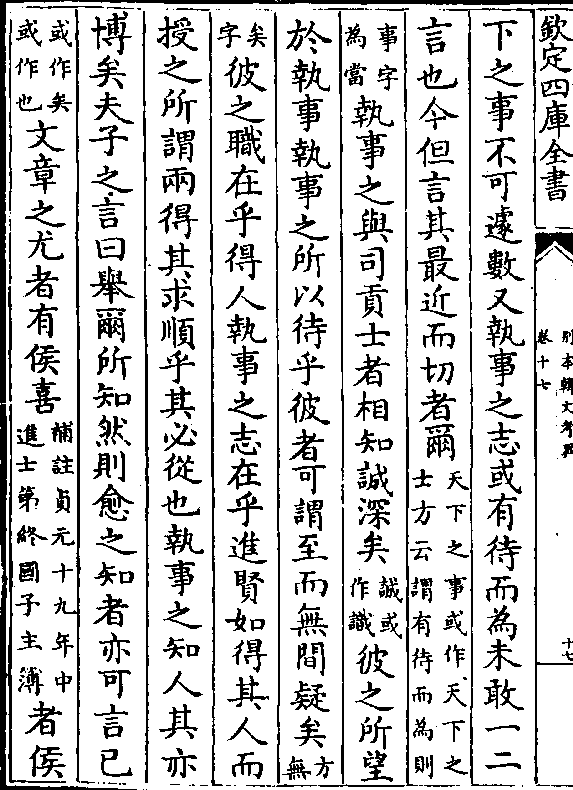 欽定四庫全書
别本韓文考異
卷十七
十七
下之事不可遽數又執事之志或有待而為未敢一二
言也今但言其最近而切者爾天下之事或作天下之士方云謂有待而為則
事字為當執事之與司貢士者相知誠深矣誠或作識彼之所望
於執事執事之所以待乎彼者可謂至而無間疑矣方無
矣字彼之職在乎得人執事之志在乎進賢如得其人而
授之所謂兩得其求順乎其必從也執事之知人其亦
博矣夫子之言曰舉爾所知然則愈之知者亦可言已
或作矣或作也文章之尤者有侯喜補註貞元十九年中進士第終國子主簿者侯